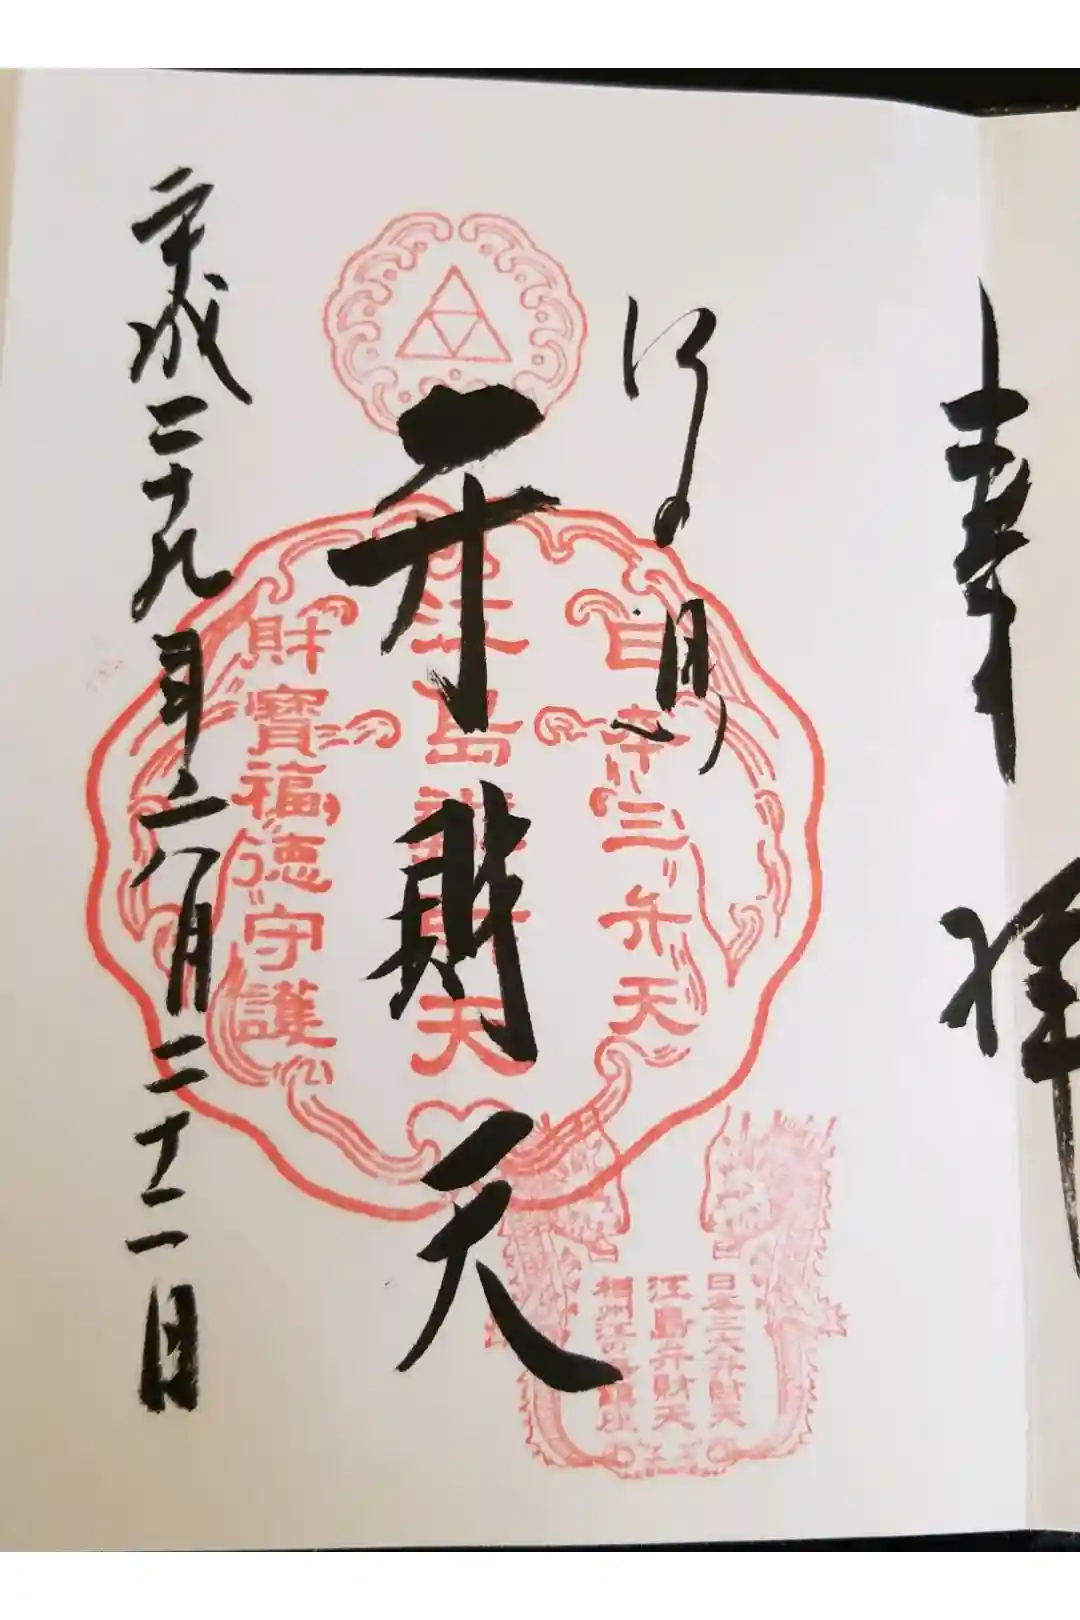 奉拝
江の島
弁財天
平成二十九年二月二十二日
日本三弁天
江島辨財天
財寶福徳守護
日本三大弁財天
江島弁財天
相州江の島鎮座